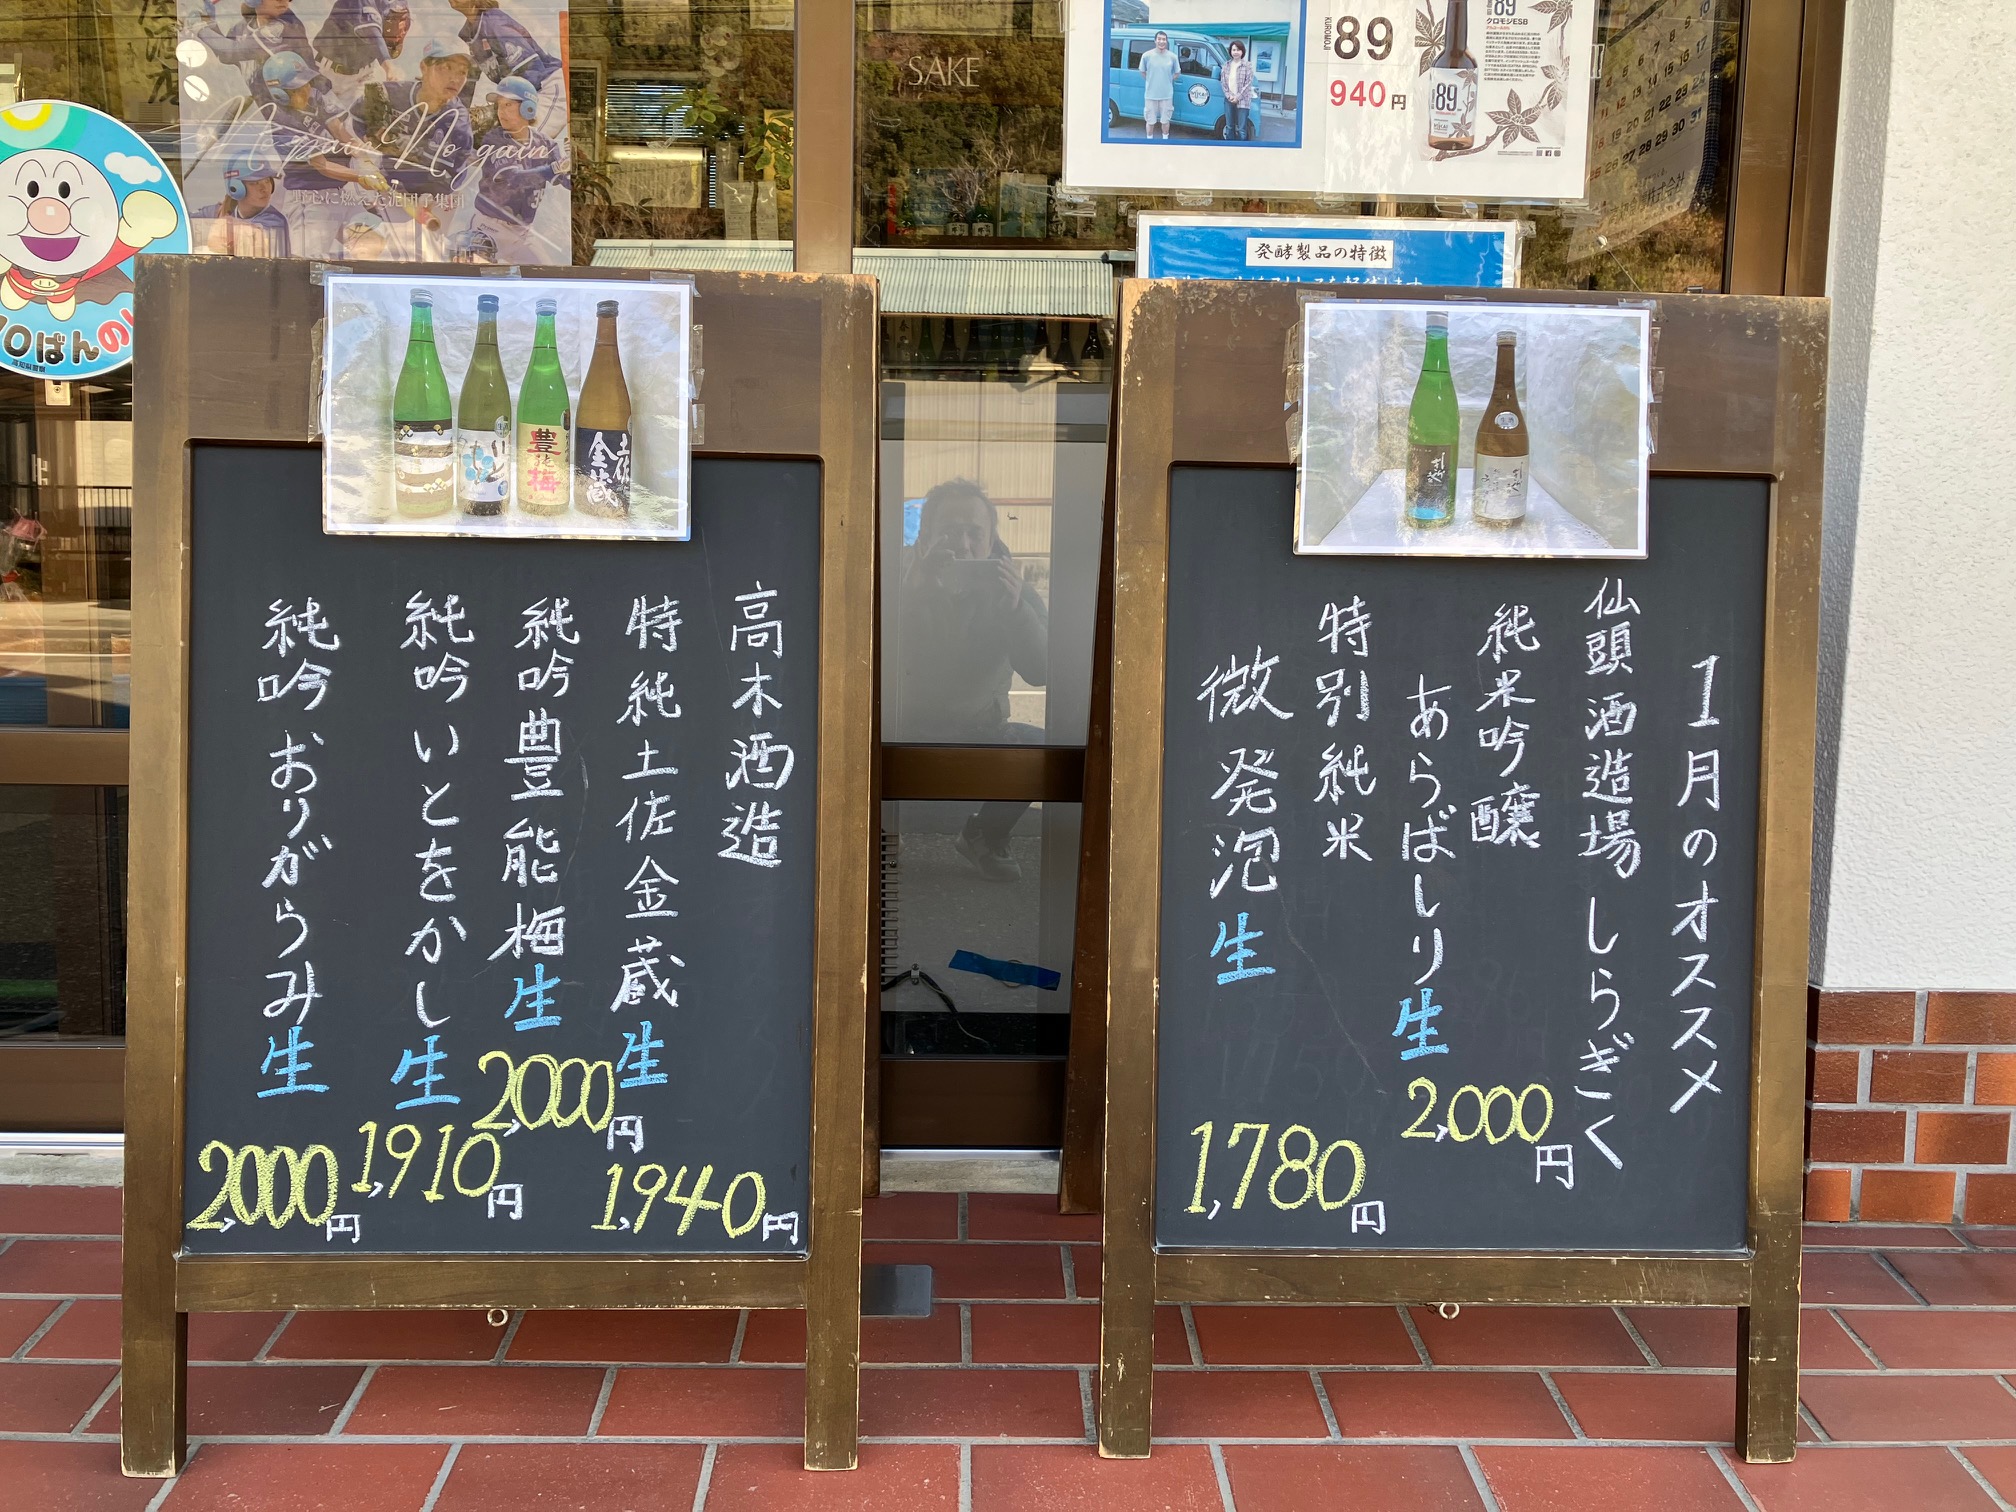 No pain No gain
野心に燃えた泥団子集団
SAKE
KUROMOJI
89
940円
89
クロモジESB
発酵製品の特徴
110ばんの
高知県警察
豊能梅
土佐金蔵
1月のオススメ
仙頭酒造場 しらぎく
純米吟醸
あらばしり生
2,000円
特別純米
微発泡生
1,780円
高木酒造
特純土佐金蔵生
1,940円
純吟豊能梅生
2,000円
純吟いとをかし生
1,910円
純吟おりがらみ生
2,000円